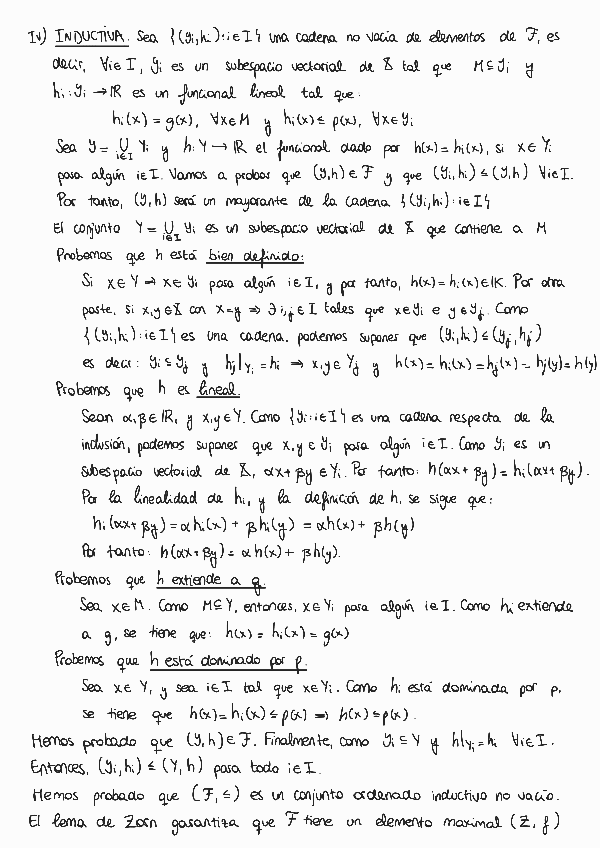 IV) INDUCTIVA. Sea {(Yi,hi):i∈I} una cadena no vacía de elementos de F, es
decir, ∀i∈I, Yi es un subespacio vectorial de X tal que M⊆Yi y
hi:Yi→IR es un funcional lineal tal que:
hi(x)=g(x), ∀x∈M y hi(x)≤p(x), ∀x∈Yi
Sea Y=∪i∈I Yi y h:Y→IR el funcional dado por h(x)=hi(x), si x∈Yi
para algún i∈I. Vamos a probar que (Y,h)∈F y que (Yi,hi)≤(Y,h) ∀i∈I.
Por tanto, (Y,h) será un mayorante de la cadena {(Yi,hi):i∈I}
El conjunto Y=∪i∈I Yi es un subespacio vectorial de X que contiene a M
Probemos que h está bien definido:
Si x∈Y ⇒ x∈Yi para algún i∈I, y por tanto, h(x)=hi(x)∈IK. Por otra
parte, si x,y∈X con x=y ⇒ ∃i,j∈I tales que x∈Yi e y∈Yj. Como
{(Yi,hi):i∈I} es una cadena, podemos suponer que (Yi,hi)≤(Yj,hj)
es decir: Yi⊆Yj y hj|Yi=hi ⇒ x,y∈Yj y h(x)=hi(x)=hj(x)=hj(y)=h(y)
Probemos que h es lineal.
Sean α,β∈IR, y x,y∈Y. Como {Yi:i∈I} es una cadena respecto de la
inclusión, podemos suponer que x,y∈Yi para algún i∈I. Como Yi es un
subespacio vectorial de X, αx+βy∈Yi. Por tanto: h(αx+βy)=hi(αx+βy).
Por la linealidad de hi, y la definición de h, se sigue que:
hi(αx+βy)=αhi(x)+βhi(y)=αh(x)+βh(y)
Por tanto: h(αx+βy)=αh(x)+βh(y).
Probemos que h extiende a g.
Sea x∈M. Como M⊆Y, entonces, x∈Yi para algún i∈I. Como hi extiende
a g, se tiene que: h(x)=hi(x)=g(x)
Probemos que h está dominado por p.
Sea x∈Y, y sea i∈I tal que x∈Yi. Como hi está dominada por p,
se tiene que h(x)=hi(x)≤p(x) ⇒ h(x)≤p(x).
Hemos probado que (Y,h)∈F. Finalmente, como Yi⊆Y y h|Yi=hi ∀i∈I.
Entonces, (Yi,hi)≤(Y,h) para todo i∈I.
Hemos probado que (F,≤) es un conjunto ordenado inductivo no vacío.
El lema de Zorn garantiza que F tiene un elemento maximal (Z,f)